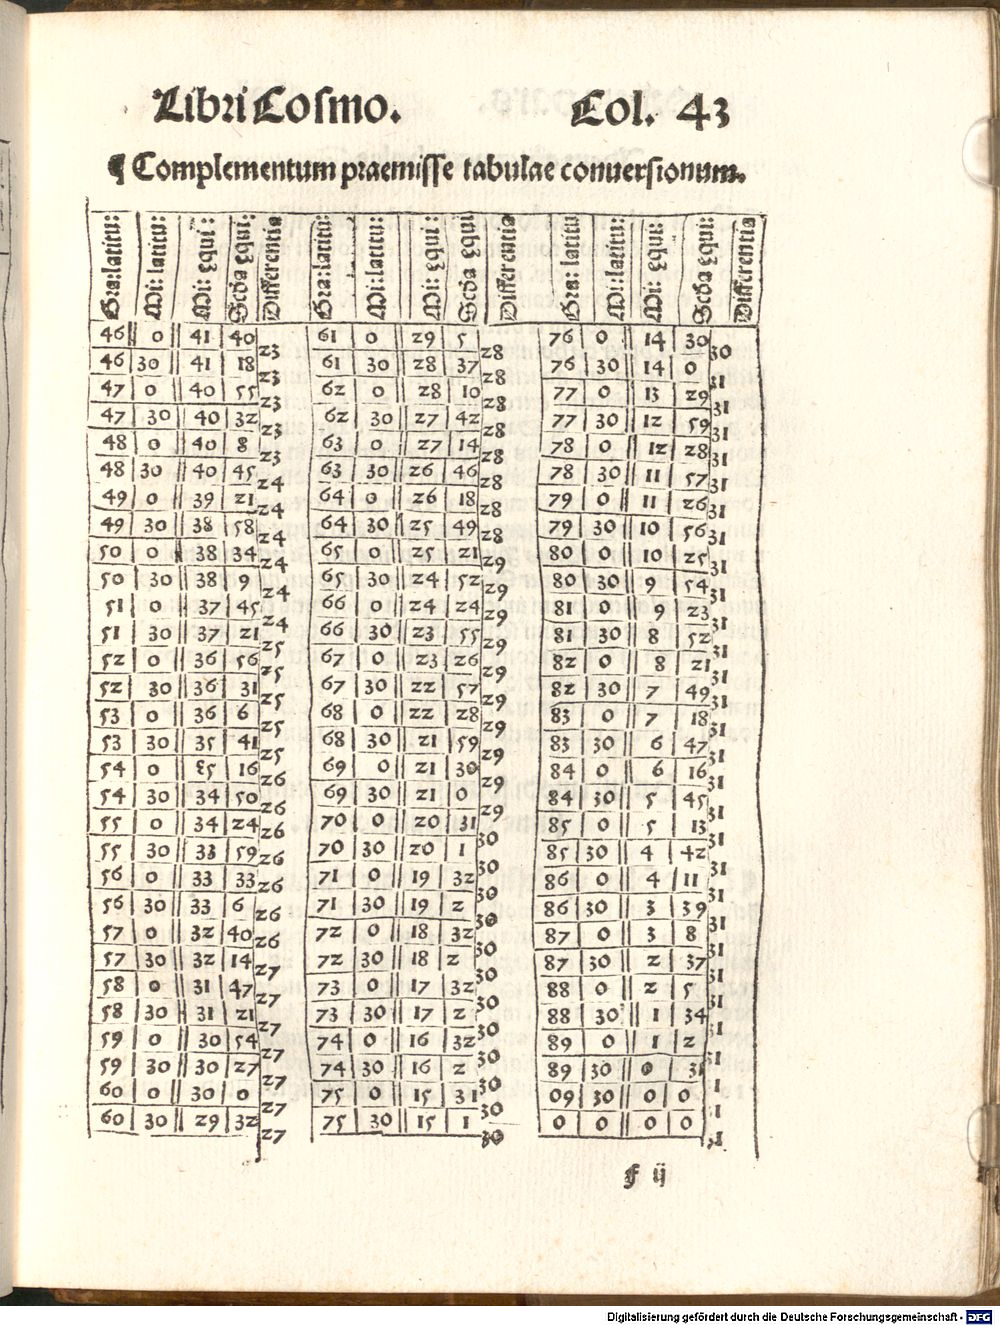 Libri Cosmo. Col. 43
¶ Complementum praemisse tabulae conuersionum.
Gra:latitu: Mi:latitu: Mi: Equi: Scda Equi: Differentia Gra:latitu: Mi:latitu: Mi: Equi: Scda Equi Differentia Gra: latitu Mi:latitu: Mi: Equi: Scda Equi: Differentia
46 0 41 40 23 61 0 29 5 28 76 0 14 30 30
46 30 41 18 23 61 30 28 37 28 76 30 14 0 31
47 0 40 55 23 62 0 28 10 28 77 0 13 29 31
47 30 40 32 23 62 30 27 42 28 77 30 12 59 31
48 0 40 8 23 63 0 27 14 28 78 0 12 28 31
48 30 40 45 24 63 30 26 46 28 78 30 11 57 31
49 0 39 21 24 64 0 26 18 28 79 0 11 26 31
49 30 38 58 24 64 30 25 49 28 79 30 10 56 31
50 0 38 34 24 65 0 25 21 29 80 0 10 25 31
50 30 38 9 24 65 30 24 52 29 80 30 9 54 31
51 0 37 45 24 66 0 24 24 29 81 0 9 23 31
51 30 37 21 25 66 30 23 55 29 81 30 8 52 31
52 0 36 56 25 67 0 23 26 29 82 0 8 21 31
52 30 36 31 25 67 30 22 57 29 82 30 7 49 31
53 0 36 6 25 68 0 22 28 29 83 0 7 18 31
53 30 35 41 25 68 30 21 59 29 83 30 6 47 31
54 0 35 16 26 69 0 21 30 29 84 0 6 16 31
54 30 34 50 26 69 30 21 0 29 84 30 5 45 31
55 0 34 24 26 70 0 20 31 30 85 0 5 13 31
55 30 33 59 26 70 30 20 1 30 85 30 4 42 31
56 0 33 33 26 71 0 19 32 30 86 0 4 11 31
56 30 33 6 26 71 30 19 2 30 86 30 3 39 31
57 0 32 40 26 72 0 18 32 30 87 0 3 8 31
57 30 32 14 27 72 30 18 2 30 87 30 2 37 31
58 0 31 47 27 73 0 17 32 30 88 0 2 5 31
58 30 31 21 27 73 30 17 2 30 88 30 1 34 31
59 0 30 54 27 74 0 16 32 30 89 0 1 2 31
59 30 30 27 27 74 30 16 2 30 89 30 0 31 31
60 0 30 0 27 75 0 15 31 30 09 30 0 0 31
60 30 29 32 27 75 30 15 1 30 0 0 0 0 31
f ij
Digitalisierung gefördert durch die Deutsche Forschungsgemeinschaft - DFG